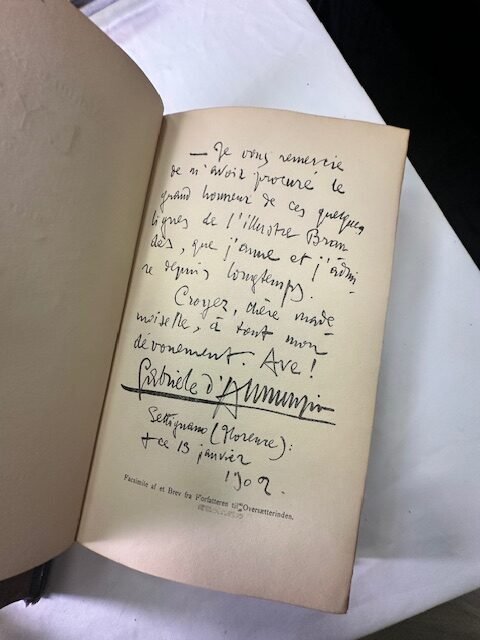 — Je vous remercie
de m'avoir procuré le
grand honneur de ces quelques
lignes de l'illustre Bran
dès, que j'aime et j'admi-
re depuis longtemps.
Croyez, chère made
moiselle, à tout mon
dévouement. Ave!
Gabriele d'Annunzio
Settignano (Florence):
ce 13 janvier
1902.
Facsimile af et Brev fra Forfatteren til Oversætterinden.